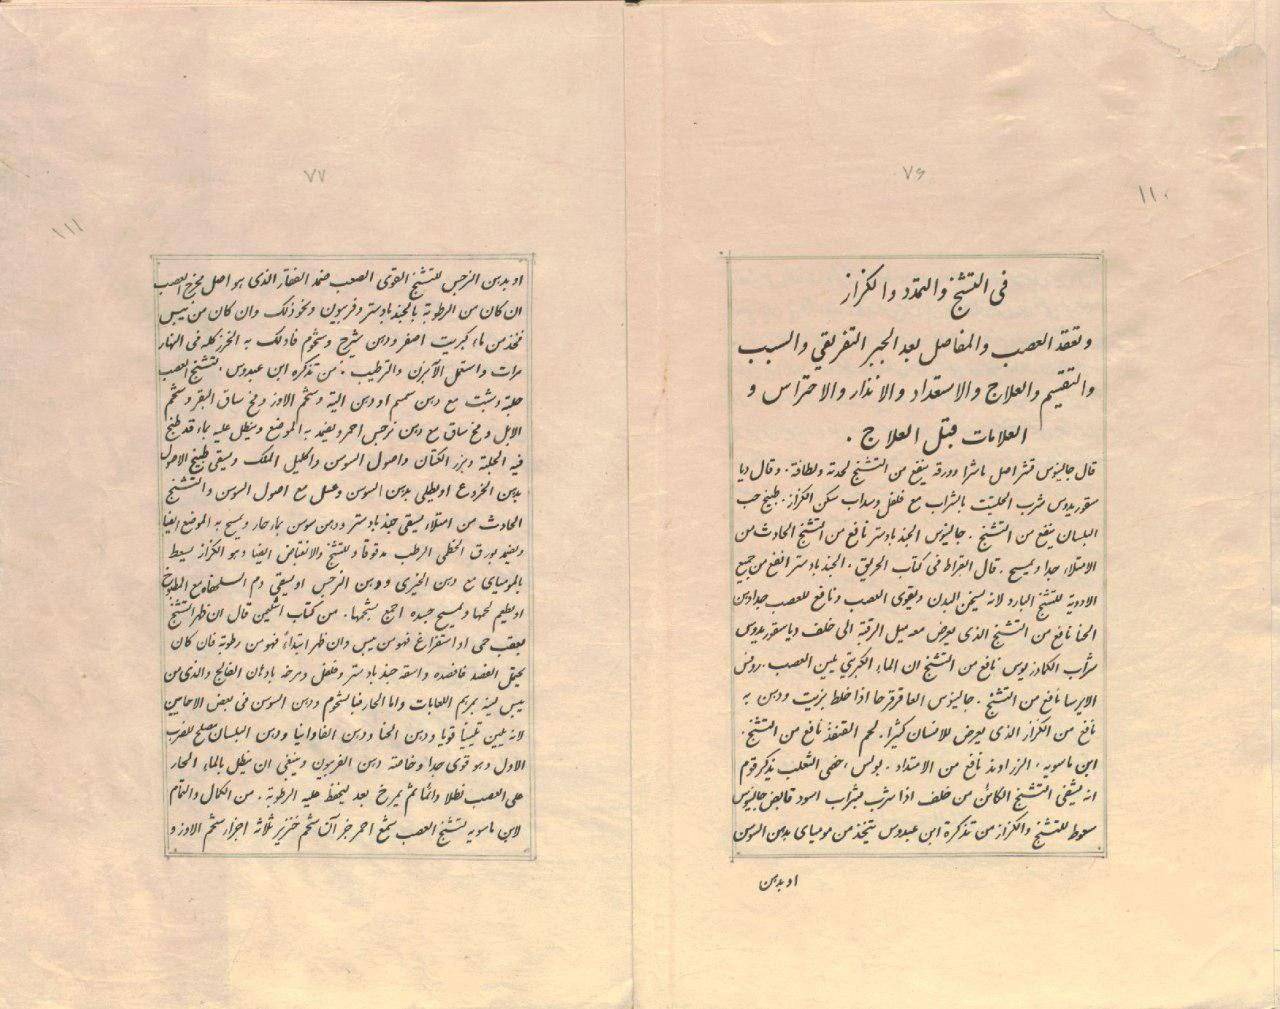 ٧۶
١١٠
فى التشنج والتمدد والكزاز
وتعقد العصب والمفاصل بعد الجبر التفريقي والسبب
والتقسيم والعلاج والاستعداد والانذار والاحتراس و
العلامات قبل العلاج .
قال جالينوس قشر اصل ماشرا وورقه ينفع من التشنج لحدته ولطافته . وقال ديا
سقوريدوس شرب الحلتيت بالشراب مع فلفل وسداب سكن الكزاز . طبيخ حب
البلسان ينفع من التشنج . جالينوس الجندبادستر نافع من التشنج الحادث من
الامتلاء جدا ويمسح . قال ابقراط فى كتاب الحريق . الجندبادستر انفع من جميع
الادوية للتشنج البارد لانه يسخن البدن ويقوى العصب ونافع للعصب جدا دهن
الحنا نافع من التشنج الذى يعرض معه ميل الرقبة الى خلف دياسقوريدوس
شراب الكمادريوس نافع من التشنج ان الماء الكبريتى يلين العصب . روفس
الايرسا نافع من التشنج . جالينوس العاقرقرحا اذا خلط بزيت ودهن به
نافع من الكزاز الذى يعرض للانسان كثيرا . لحم القنفذ نافع من التشنج .
ابن ماسويه ، الزراوند نافع من الامتداد . بولس ، خصى الثعلب يذكر قوم
انه يشفى التشنج الكائن من خلف اذا شرب بشراب اسود قابض جالينوس
سعوط للتشنج والكزاز من تذكرة ابن عبدوس يتخذ من موميائ بدهن السوسن
او بدهن
٧٧
١١١
او بدهن النرجس للتشنج القوى الصعب ضمد الفقار الذى هو اصل مخرج العصب
ان كان من الرطوبة بالجندبادستر وفربيون ونحو ذلك وان كان من يبس
فخذ من ماء كبريت اصفر ودهن شيرج وشحوم فادلك به الخرز كله فى النهار
مرات واستعمل الآبزن والترطيب . من تذكره ابن عبدوس . لتشنج العصب
حلبة وشبت مع دهن سمسم او دهن الية وشحم الاوز ومخ ساق البقر وشحم
الابل ومخ ساق مع دهن نرجس احمر ويضمد به الموضع وينطل عليه بماء قد طبخ
فيه الحلبة وبزر الكتان واصول السوسن واكليل الملك ويسقى طبيخ الاصول
بدهن الخروع او يطلى بدهن السوسن وعسل مع اصول السوسن والتشنج
الحادث من امتلاء يسقى جندبادستر ودهن سوسن بماء حار ويمسح به الموضع ايضا
ويضمد بورق الخطمى الرطب مدقوقا وللتشنج والانقباض ايضا وهو الكزاز يسعط
بالموميائ مع دهن الخيرى ودهن النرجس او يسقى دم السلحفاه مع الطبوخ
او يطعم لحمها ويمسح جسده اجمع بشحمها . من كتاب قال ان ظهر التشنج
بعقب حمى او استفراغ فهو من يبس وان ظهر ابتداءً فهو من رطوبة فان كان
يحتمل الفصد فافصده واسقه جندبادستر وفلفل ومرخه بادهان الفالج والذى من
يبس لينه بمرهم اللعابات واما الحار فبالشحوم ودهن السوسن فى بعض الاحايين
لانه يلين تليينا قويا ودهن الحنا ودهن الفاوانيا ودهن البلسان يصلح للضرب
الاول وهو قوى جدا وخاصته دهن الفربيون وينبغى ان ينطل بالماء الحار
على العصب نطلا دائما ثم يمرخ بعد ليحفظ عليه الرطوبة . من الكمال والتمام
لابن ماسويه لتشنج العصب شمع احمر جزآن شحم خنزير ثلاثة اجزاء شحم الاوز و